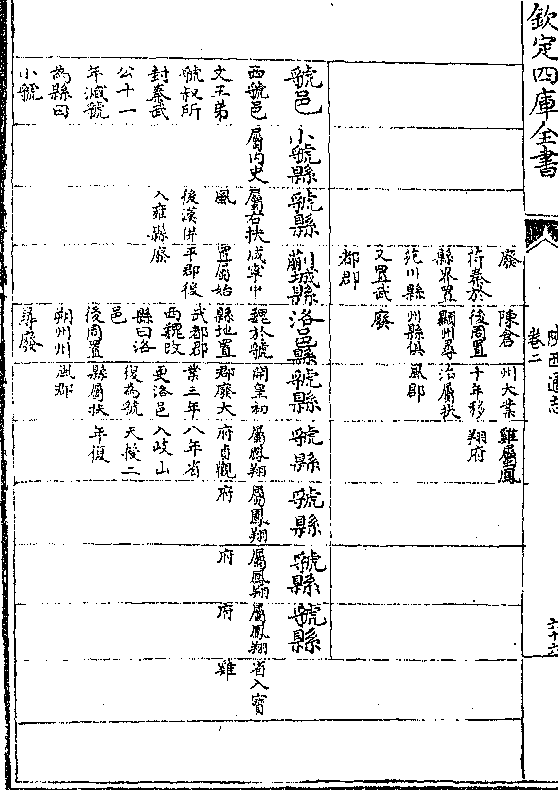 欽定四庫全書
陜西通志
卷二
廢
苻秦於
縣界置
苑川縣
又置武
都郡
陳倉
後周置
顯州尋
州縣俱
廢
州大業
十年移
治屬扶
風郡
雞屬鳳
翔府
虢邑
西虢邑
文王弟
虢叔所
封秦武
公十一
年滅虢
為縣曰
小虢
小虢縣
屬内史
虢縣
屬右扶
風
後漢併
入雍縣
蒯城縣
咸寧中
置屬始
平郡後
廢
洛邑縣
魏於虢
縣地置
武都郡
西魏改
縣曰洛
邑
後周置
朔州州
尋廢
虢縣
開皇初
郡廢大
業三年
更洛邑
復為虢
縣屬扶
風郡
虢縣
屬鳳翔
府貞觀
八年省
入岐山
天授二
年復
虢縣
屬鳳翔
府
虢縣
屬鳳翔
府
虢縣
屬鳳翔
府
省入寶
雞